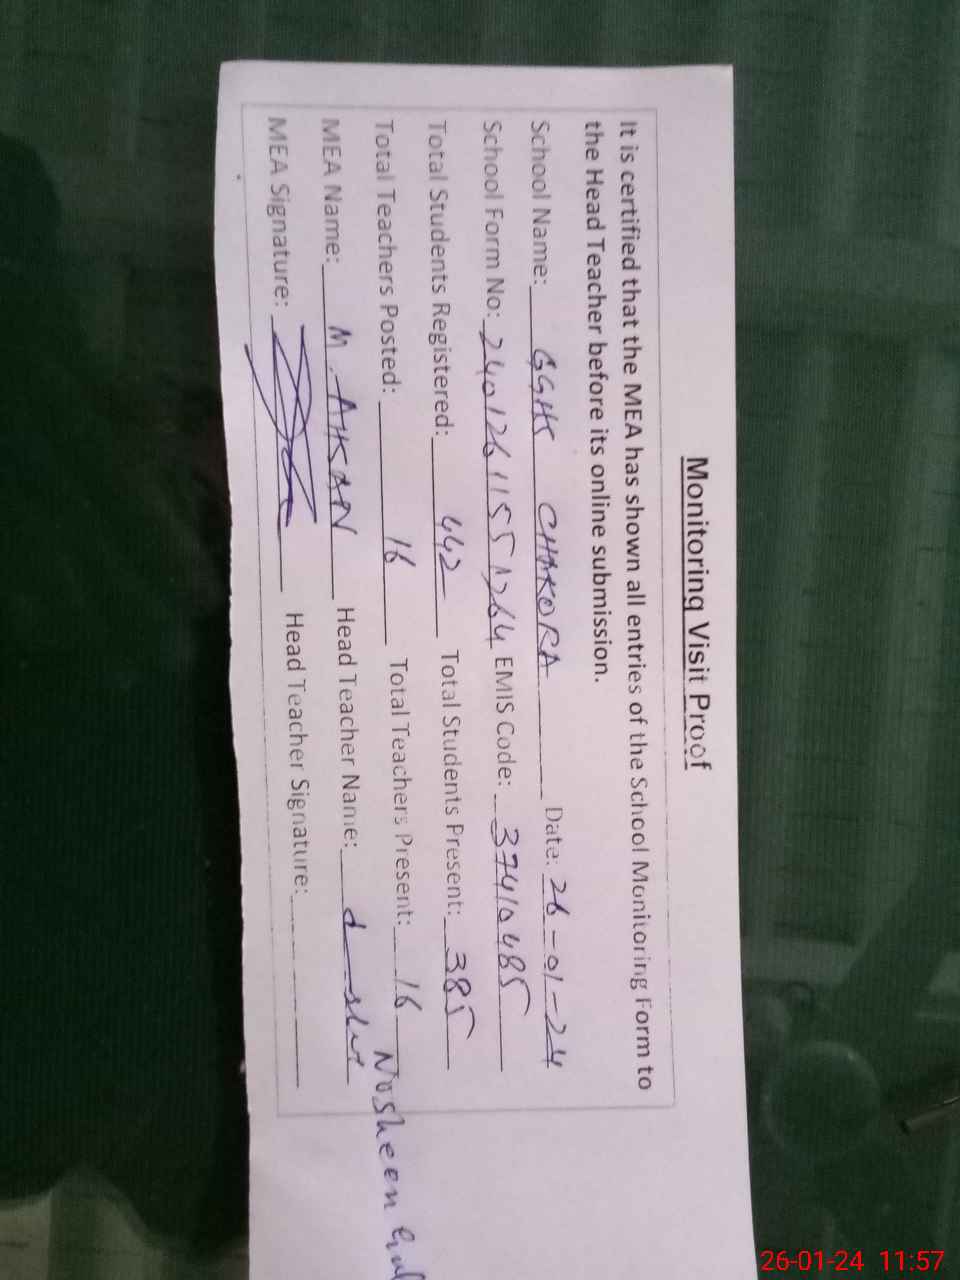 Monitoring Visit Proof
It is certified that the MEA has shown all entries of the School Monitoring Form to
the Head Teacher before its online submission.
School Name: GGHS CHAKORA Date: 26-01-24
School Form No: 24012611551264 EMIS Code: 37410485
Total Students Registered: 442 Total Students Present: 385
Total Teachers Posted: 16 Total Teachers Present: 16
MEA Name: M. AHSAN Head Teacher Name:
Nosheen Gul
MEA Signature: Head Teacher Signature:
26-01-24 11:57